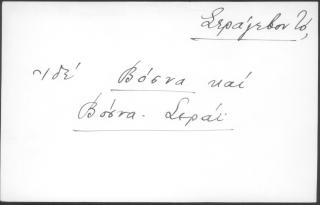 Σεράγεβον Τό,
Ἰδέ Βόσνα καί
Βόσνα-Σεράϊ